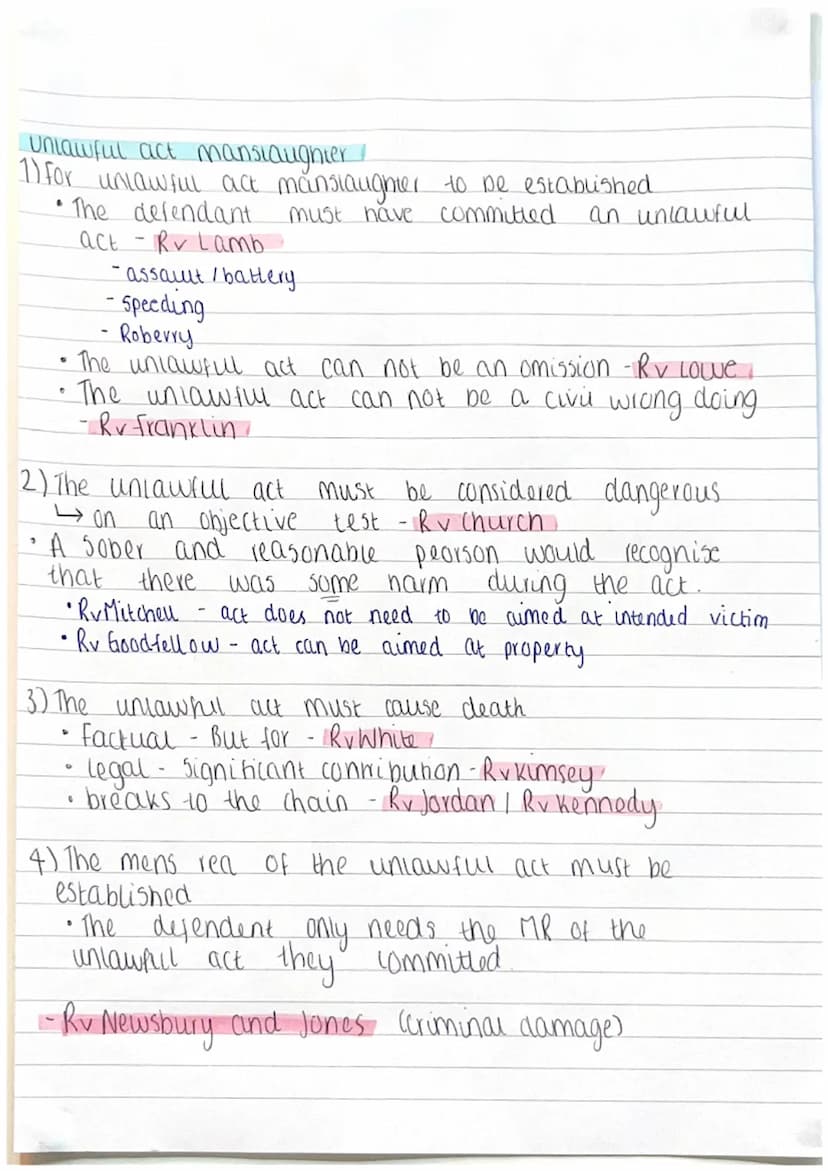 unlawful act manslaughter
1) For unlawful act manslaughter to be established
• The defendant must have committed an unlawful
act - R v Lamb
- assault / battery
- Speeding
- Roberry
• The unlawful act can not be an omission - R v Lowe
• The unlawful act can not be a civil wrong doing
- R v Franklin
2) The unlawful act must be considered dangerous
↳ on an objective test - R v Church
• A sober and reasonable peorson would recognise
that there was some harm during the act.
• R v Mitchell - act does not need to be aimed at intended victim
• R v Goodfellow - act can be aimed at property
3) The unlawful act must cause death
• Factual - But for - R v White
• legal - Significant contribution - R v Kimsey
• breaks to the chain - R v Jordan / R v Kennedy
4) The mens rea of the unlawful act must be
established
• The defendent only needs the MR of the
unlawful act they committed
- R v Newsbury and Jones (criminal damage)